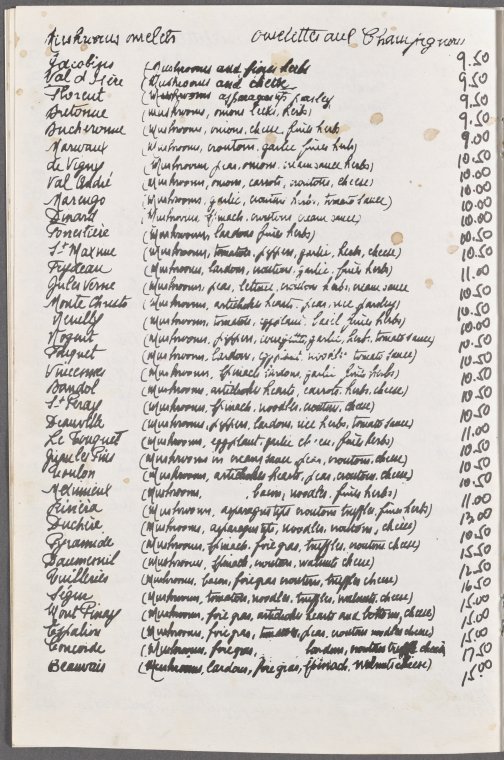 Mushrooms omelets omelettes aux Champignons
Jacobins (Mushrooms and fines herbs 9.50
Val d'Isère (Mushrooms and cheese 9.50
Florent (Mushrooms asparagus tips parsley 9.50
Bretonne (Mushrooms, onions leeks, herbs) 9.50
Bucheronne (Mushrooms, onions, cheese, fines herb 9.00
Marivaux (Mushrooms, croutons, garlic fines herbs) 10.50
de Vigny (Mushrooms peas, onions, cream sauce herbs)
Val André (Mushrooms, onions, carrots, croutons, cheese)
Marengo (Mushrooms, garlic, croutons herbs, tomato sauce)
Dinard (Mushrooms spinach, croutons cream sauce)
Forestière (Mushrooms, lardons fines herbs) 10.50
St Maxime (Mushrooms, tomatoes, peppers, garlic, herbs, cheese) 10.50
Feydeau (Mushrooms, lardons, croutons, garlic, fines herbs) 11.00
Jules Verne (Mushrooms, peas, lettuce, croutons herbs, cream sauce
Monte Christo (Mushrooms, artichoke hearts, peas, rice parsley) 10.50
(Mushrooms, tomatoes, eggplant, basil fines herbs) 10.50
(Mushrooms, peppers, courgette, garlic, herbs, tomato sauce) 10.50
(Mushrooms, lardons, eggplant noodles tomato sauce) 10.50
Vincennes (Mushrooms, spinach lardons, garlic fines herbs) 10.50
Bandol (Mushrooms, artichoke hearts, carrots, herbs, cheese) 10.50
St Peray (Mushrooms, spinach, noodles, croutons, cheese) 10.50
Deauville (Mushrooms, peppers, lardons, rice herbs, tomato sauce) 11.00
Le Touquet (Mushrooms, eggplant, garlic cheese, fines herbs) 10.50
Juan les Pins (Mushrooms in cream sauce peas, croutons, cheese) 10.50
Toulon (Mushrooms, artichokes hearts, peas, croutons, cheese) 10.50
(Mushrooms, bacon, noodles, fines herbs) 11.00
(Mushrooms, asparagus tips croutons truffles, fines herbs) 13.00
Duchesse (Mushrooms, asparagus tips, noodles, croutons, cheese) 10.50
Pyramide (Mushrooms, spinach, foie gras, truffles, croutons cheese) 15.50
Daumesnil (Mushrooms, spinach, croutons, walnuts cheese) 12.50
Tuilleries (Mushrooms, bacon, foie gras croutons, truffles cheese) 16.50
Ségur (Mushrooms, tomatoes, noodles, truffles, walnuts, cheese) 15.00
Mont Pinay (Mushrooms, foie gras, artichoke hearts and bottoms, cheese) 15.00
Espalion (Mushrooms, foie gras, tomatoes, peas, croutons noodles cheese) 15.00
Concorde (Mushrooms, foie gras, lardons, croutons truffle cheese) 17.50
Beauvais (Mushrooms, lardons, foie gras, spinach, walnuts cheese) 15.00